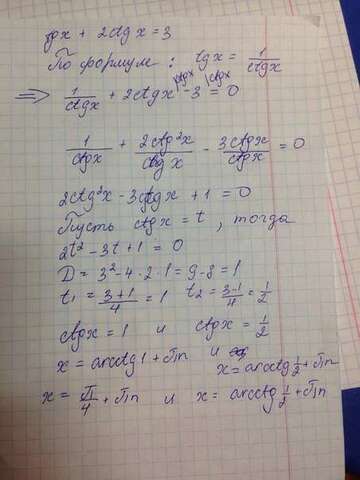 tgx + 2ctgx = 3
По формул: tgx = 1/ctgx
⟹ 1/ctgx + 2ctgx |ctgx - 3 |ctgx = 0
1/ctgx + 2ctg²x/ctgx - 3ctgx/ctgx = 0
2ctg²x - 3ctgx + 1 = 0
Пусть ctgx = t, тогда
2t² - 3t + 1 = 0
D = 3² - 4·2·1 = 9 - 8 = 1
t₁ = 3+1/4 = 1 t₂ = 3-1/4 = 1/2
ctgx = 1 и ctgx = 1/2
x = arcctg1 + πn и x = arcctg 1/2 + πn
x = π/4 + πn и x = arcctg 1/2 + πn